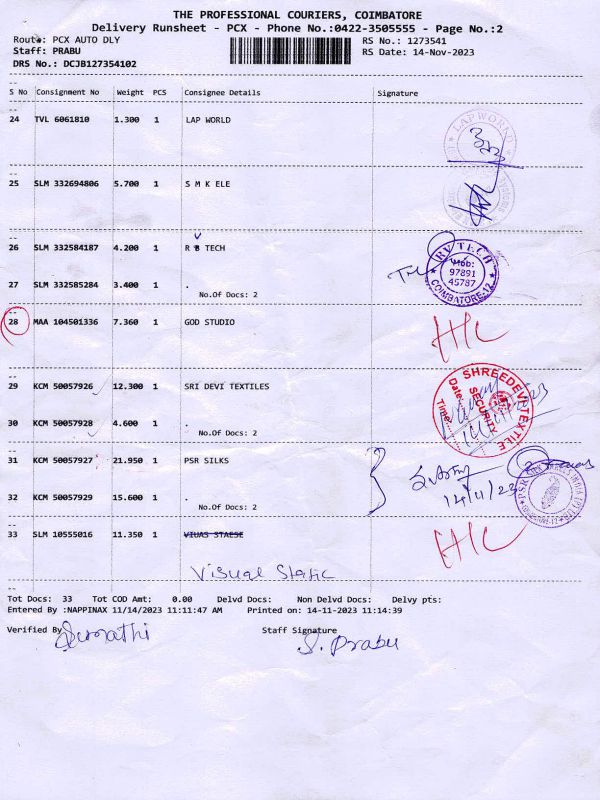 THE PROFESSIONAL COURIERS, COIMBATORE
Delivery Runsheet - PCX - Phone No.:0422-3505555 - Page No.:2
Route: PCX AUTO DLY RS No.: 1273541
Staff: PRABU RS Date: 14-Nov-2023
DRS No.: DCJB127354102
S No Consignment No Weight PCS Consignee Details Signature
24 TVL 6061810 1.300 1 LAP WORLD
LAP WORLD
25 SLM 332694806 5.700 1 S M K ELE
26 SLM 332584187 4.200 1 R B TECH
V
RV TECH
Mob:
97891
45787
COIMBATORE-12
27 SLM 332585284 3.400 1 .
No.Of Docs: 2
28 MAA 104501336 7.360 1 GOD STUDIO
29 KCM 50057926 12.300 1 SRI DEVI TEXTILES
SHREEDEVI TEXTILE
SECURITY
Date:
Time:
30 KCM 50057928 4.600 1 .
No.Of Docs: 2
31 KCM 50057927 21.950 1 PSR SILKS
14/11/23
32 KCM 50057929 15.600 1 .
No.Of Docs: 2
33 SLM 10555016 11.350 1 VIUAS STAESE
Visual Static
Tot Docs: 33 Tot COD Amt: 0.00 Delvd Docs: Non Delvd Docs: Delvy pts:
Entered By :NAPPINAX 11/14/2023 11:11:47 AM Printed on: 14-11-2023 11:14:39
Verified By Staff Signature
Sumathi S. Prabu